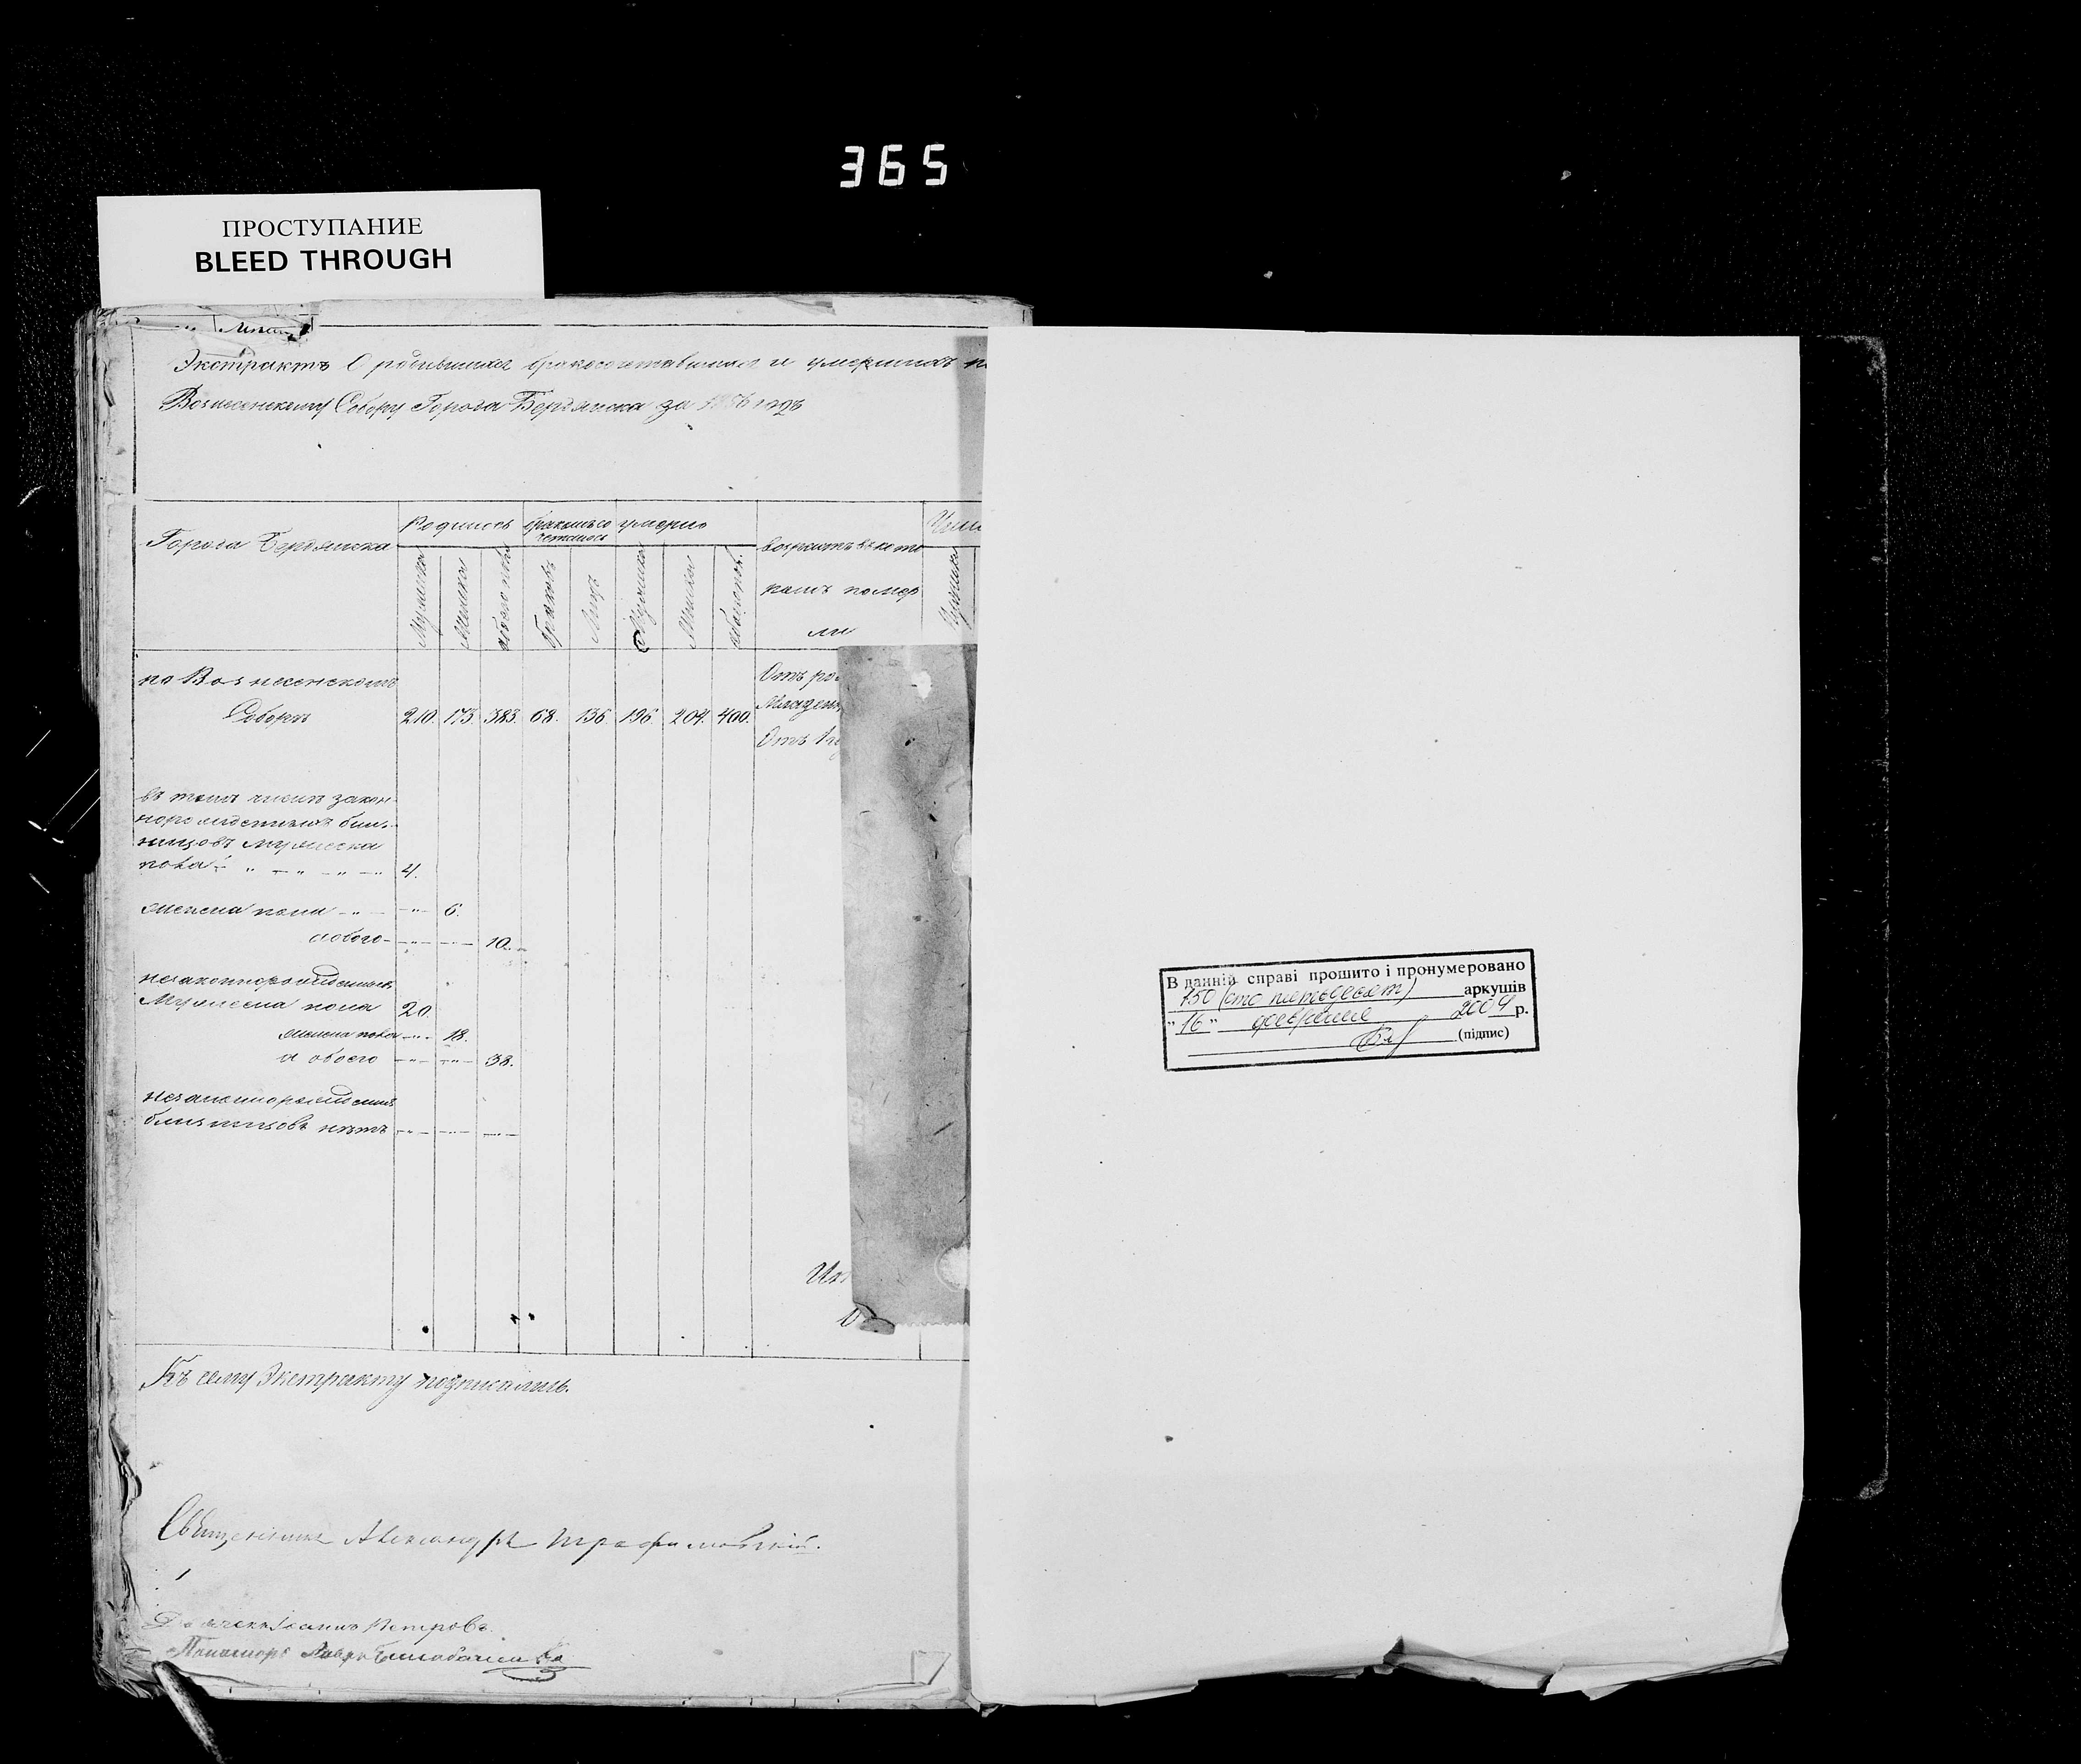 365
ПРОСТУПАНИЕ
BLEED THROUGH
Экстрактъ О родившихся бракосочетавшихся и умершихъ
Вознесенскому Собору Города Бердянска за годъ
Города Бердянска
Родилось
бракомъ со
четалось
умерло
возрастъ въ кото
рамъ помер
ли
Мужеска
Женска
обоего пола
браковъ
Лицъ
Мужеска
Женска
обоего пол.
по Вознесенскому
Собору
210. 173. 383. 68. 136. 196. 204. 400.
Отъ ро
Младен
Отъ 1
въ томъ числѣ закон-
норожденныхъ близ-
нецовъ мужеска
пола 4.
женска пола 6.
а обоего 10.
незаконнорожденныхъ
Мужеска пола 20.
женска пола 18.
а обоего 38.
незаконнорожденныхъ
близнецовъ нѣтъ
Къ сему Экстракту подписались.
Священникъ Александръ Трофимовскій.
Дьячекъ Іоаннъ Петровъ.
Пономарь
В данній справі прошито і пронумеровано
150 (сто пятьдесят) аркушів
"16" февраля 2004 р.
(підпис)